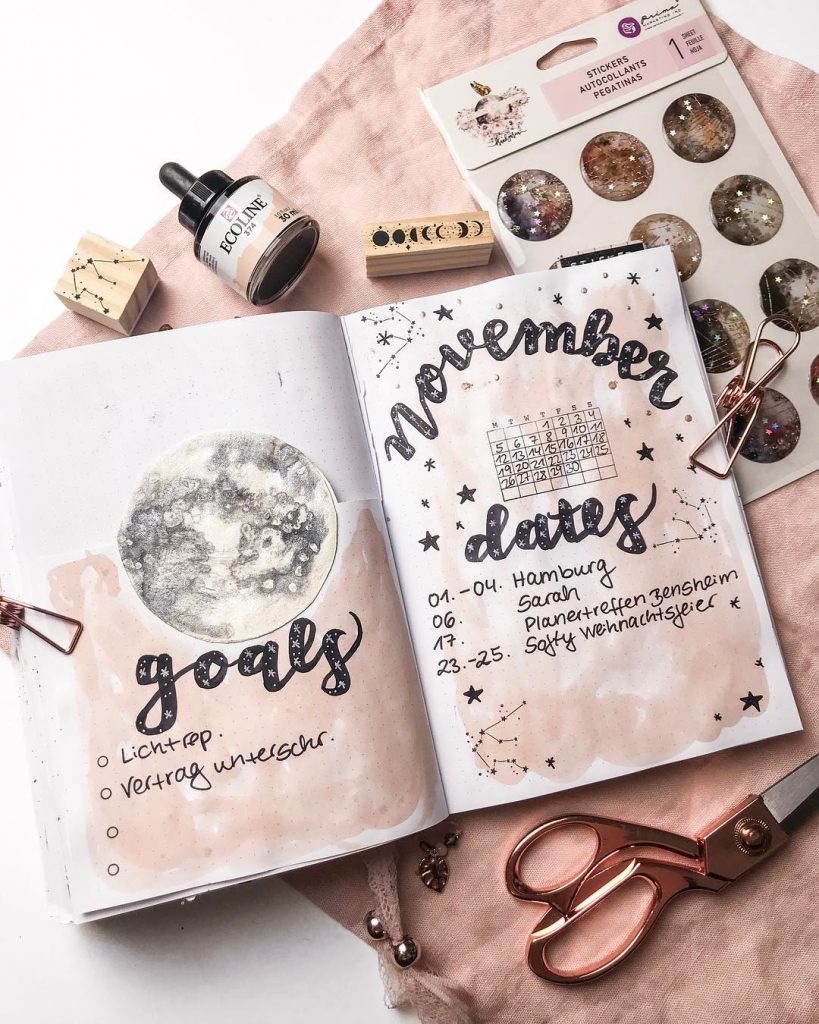 prima
MARKETING INC
STICKERS
AUTOCOLLANTS
PEGATINAS
1
SHEET
FEUILLE
HOJA
ECOLINE
374
30 ml
goals
Lichtrep.
Vertrag unterschr.
november
M T W T F S S
1 2 3 4
5 6 7 8 9 10 11
12 13 14 15 16 17 18
19 20 21 22 23 24 25
26 27 28 29 30
dates
01.-04. Hamburg
06. Sarah
17. Planertreffen Bensheim
23.-25. Softy Weihnachtsfeier